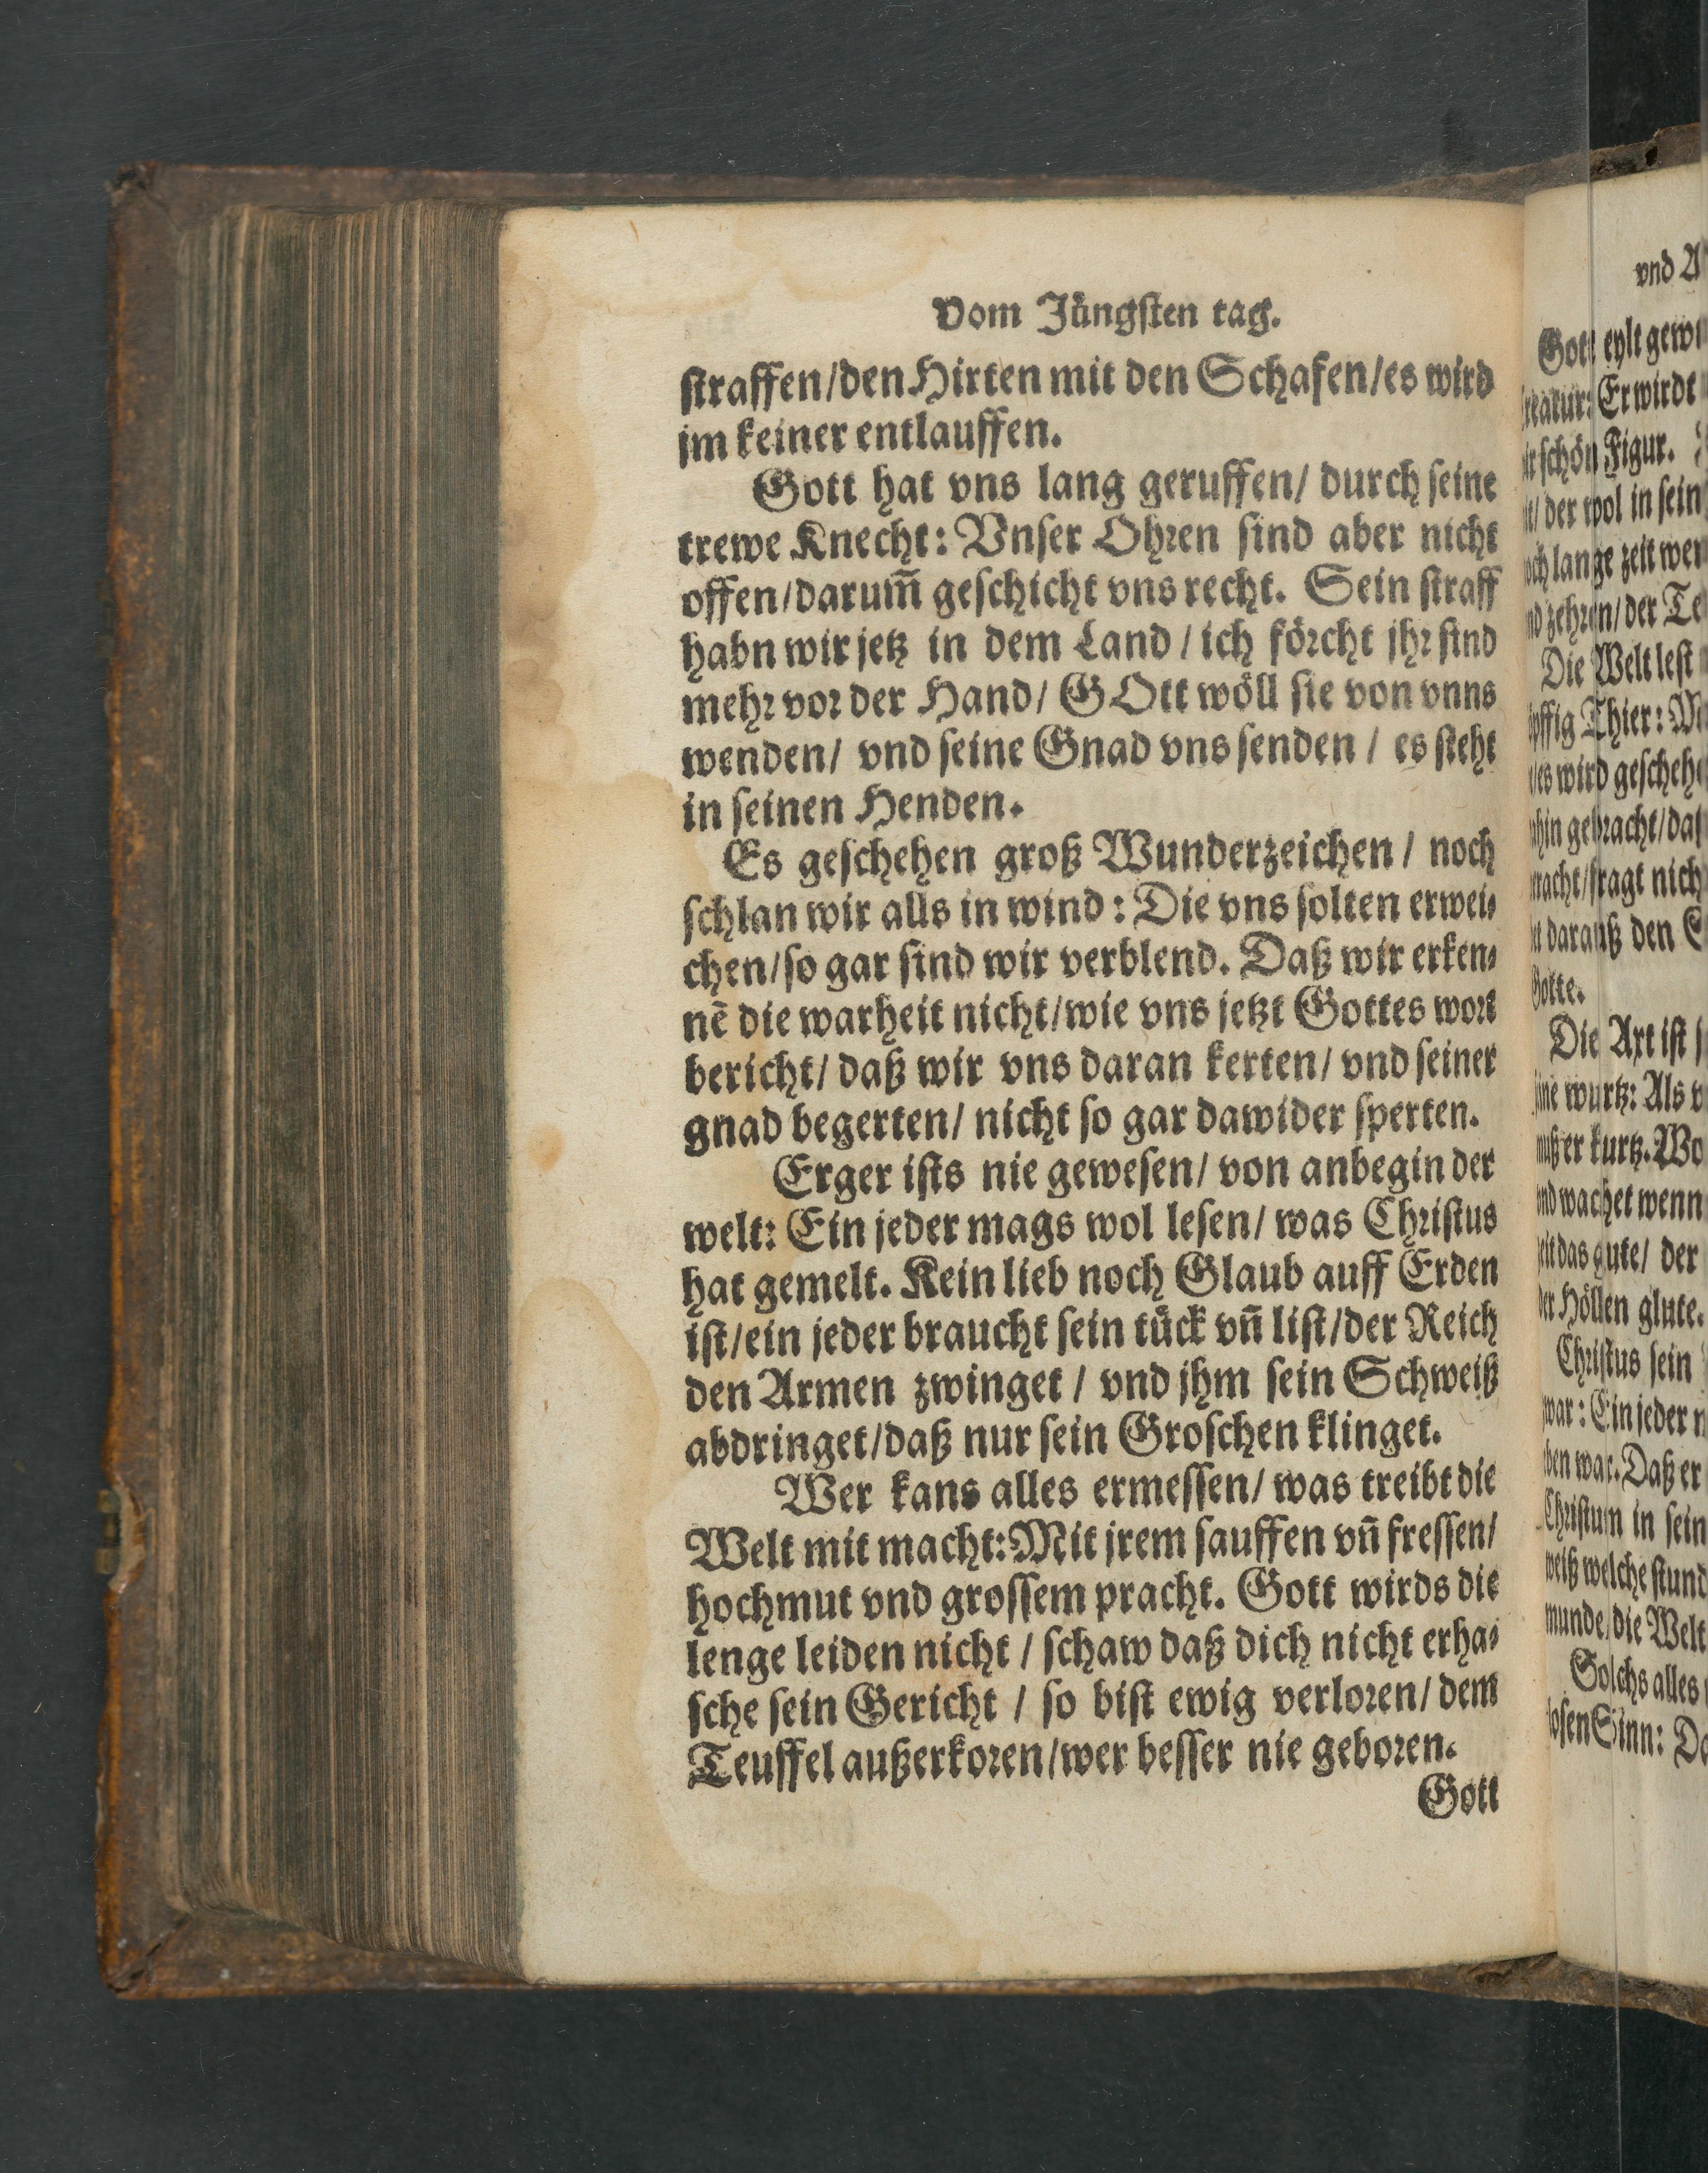 Vom Jüngsten tag.
straffen/den Hirten mit den Schafen/es wird
jm keiner entlauffen.
Gott hat vns lang geruffen/ durch seine
trewe Knecht: Vnser Ohren sind aber nicht
offen/darum̃ geschicht vns recht. Sein straff
habn wir jetz in dem Land / ich förcht jhr sind
mehr vor der Hand/ GOtt wöll sie von vnns
wenden/ vnd seine Gnad vns senden / es steht
in seinen Henden.
Es geschehen groß Wunderzeichen / noch
schlan wir alls in wind: Die vns solten erwei-
chen/so gar sind wir verblend. Daß wir erken-
nẽ die warheit nicht/wie vns jetzt Gottes wort
bericht/ daß wir vns daran kerten/ vnd seiner
gnad begerten/ nicht so gar dawider sperten.
Erger ists nie gewesen/ von anbegin der
welt: Ein jeder mags wol lesen/ was Christus
hat gemelt. Kein lieb noch Glaub auff Erden
ist/ein jeder braucht sein tück vñ list/der Reich
den Armen zwinget / vnd jhm sein Schweiß
abdringet/daß nur sein Groschen klinget.
Wer kans alles ermessen/ was treibt die
Welt mit macht: Mit jrem sauffen vñ fressen/
hochmut vnd grossem pracht. Gott wirds die
lenge leiden nicht / schaw daß dich nicht erha-
sche sein Gericht / so bist ewig verloren/ dem
Teuffel außerkoren/wer besser nie geboren.
Gott
vnd
Gott eylt
Er wirdt
schön Figur.
der wol in sein
lange zeit
der
Die Welt lest
Thier:
es wird
den
Gotte.
Die Axt ist
wurtz: Als
er kurtz. Wo
wachet wenn
das gute/ der
Höllen glute.
Christus sein
war: Ein jeder
war. Daß er
Christum in sein
weiß welche stund
munde/die Welt
Solchs alles
Sinn: